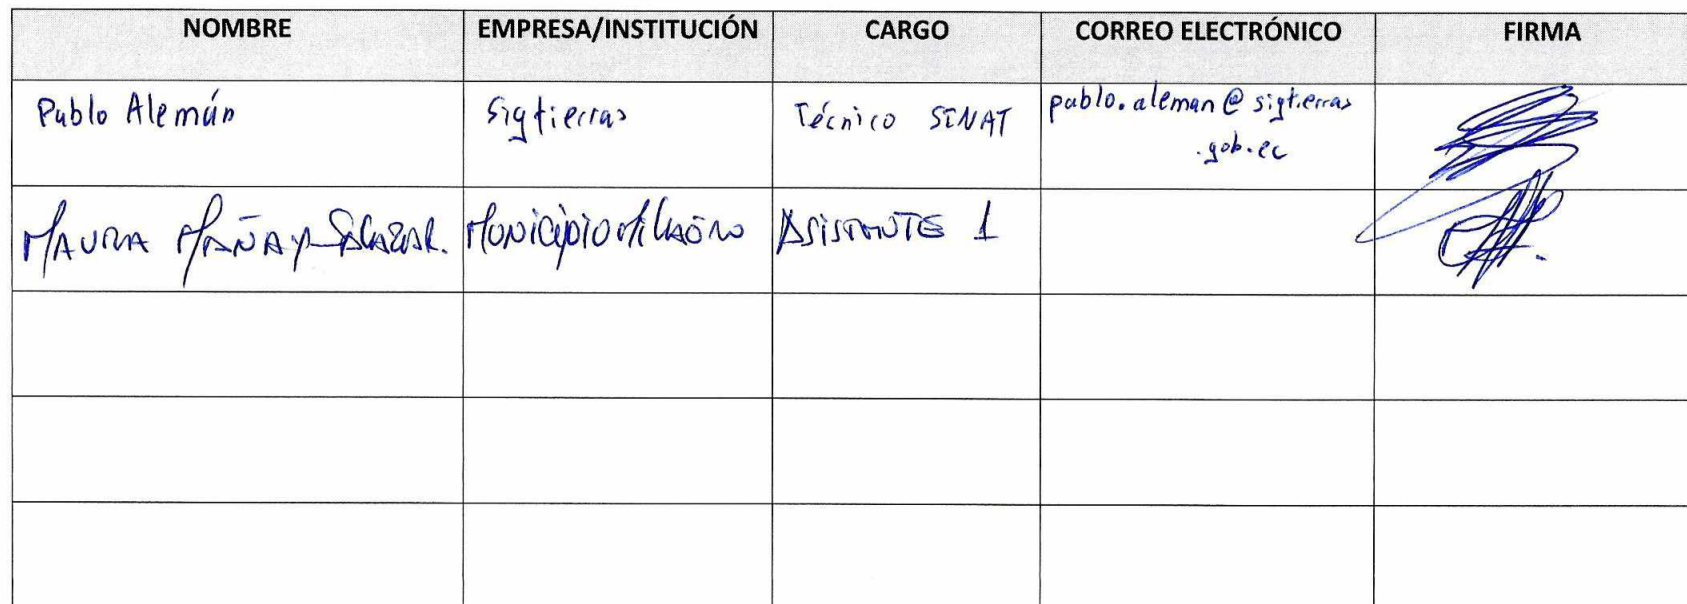 NOMBRE EMPRESA/INSTITUCIÓN CARGO CORREO ELECTRÓNICO FIRMA
Pablo Alemán Sigtierras Técnico SINAT pablo.aleman@sigtierras
.gob.ec
MAURA MAÑAY SALAZAR. MUNICIPIO MILAGRO ASISTENTE 1